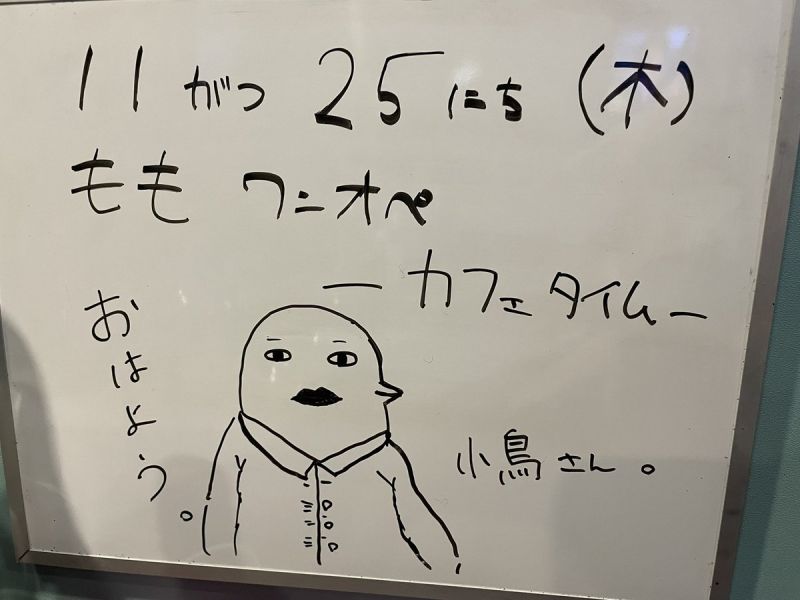 11がつ25にち(木)
もも ワニオペ
ーカフェタイムー
おはよう。
小鳥さん。